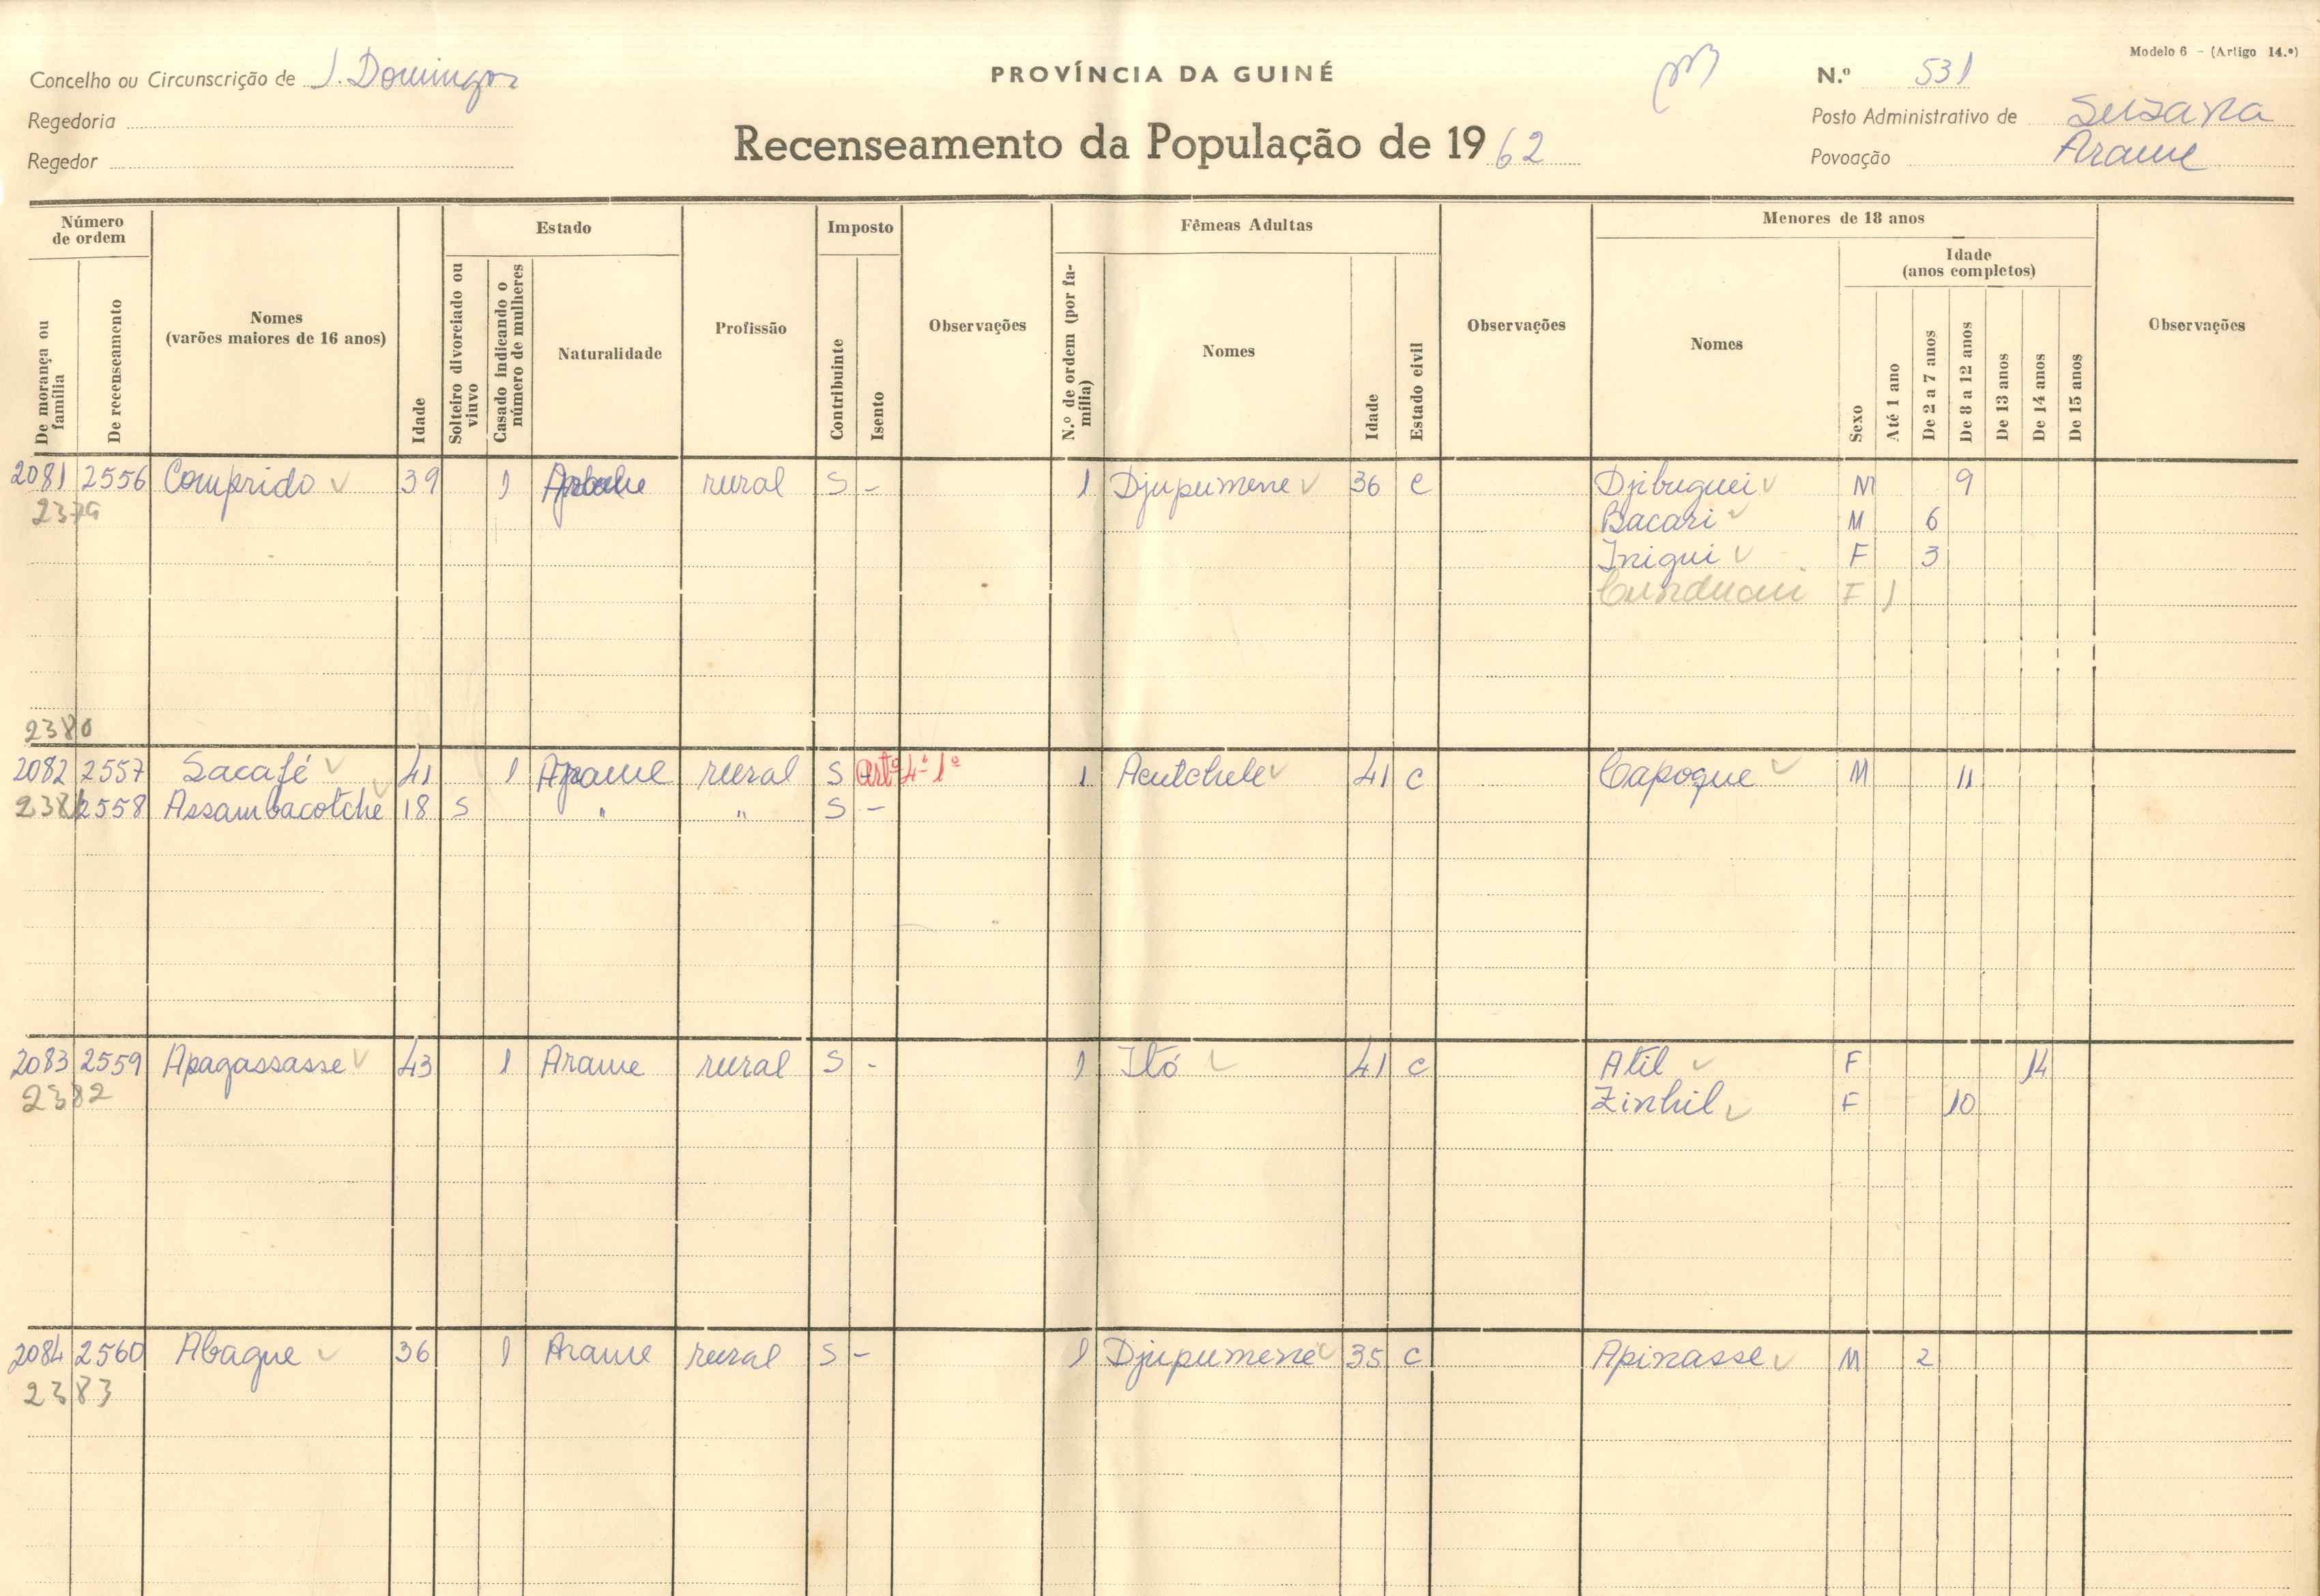 Modelo 6 - (Artigo 14.º)
Concelho ou Circunscrição de S. Domingos
PROVÍNCIA DA GUINÉ
N.º 531
Regedoria
Posto Administrativo de Susana
Regedor
Recenseamento da População de 1962
Povoação Arame
Número de ordem
De morança ou família
De recenseamento
Nomes
(varões maiores de 16 anos)
Idade
Estado
Solteiro divorciado ou viuvo
Casado indicando o número de mulheres
Naturalidade
Profissão
Imposto
Contribuinte
Isento
Observações
Fêmeas Adultas
N.º de ordem (por família)
Nomes
Idade
Estado civil
Observações
Menores de 18 anos
Nomes
Sexo
Idade
(anos completos)
Até 1 ano
De 2 a 7 anos
De 8 a 12 anos
De 13 anos
De 14 anos
De 15 anos
Observações
2081 2556 Comprido 39 1 rural S - 1 Djupumene 36 C Djibuguei M 9
2379 Bacari M 6
Inigui F 3
F 1
2380
2082 2557 Sacafé 41 1 Arame rural S Artº 4º 1º 1 Acutchele 41 C Capoque M 11
2381 2558 Assambacotche 18 S " " S -
2083 2559 Apagassasse 43 1 Arame rural S - 1 Itó 41 C Atil F 14
2382 Zinhil F 10
2084 2560 Abague 36 1 Arame rural S - 1 Djupumene 35 C Apinasse M 2
2383